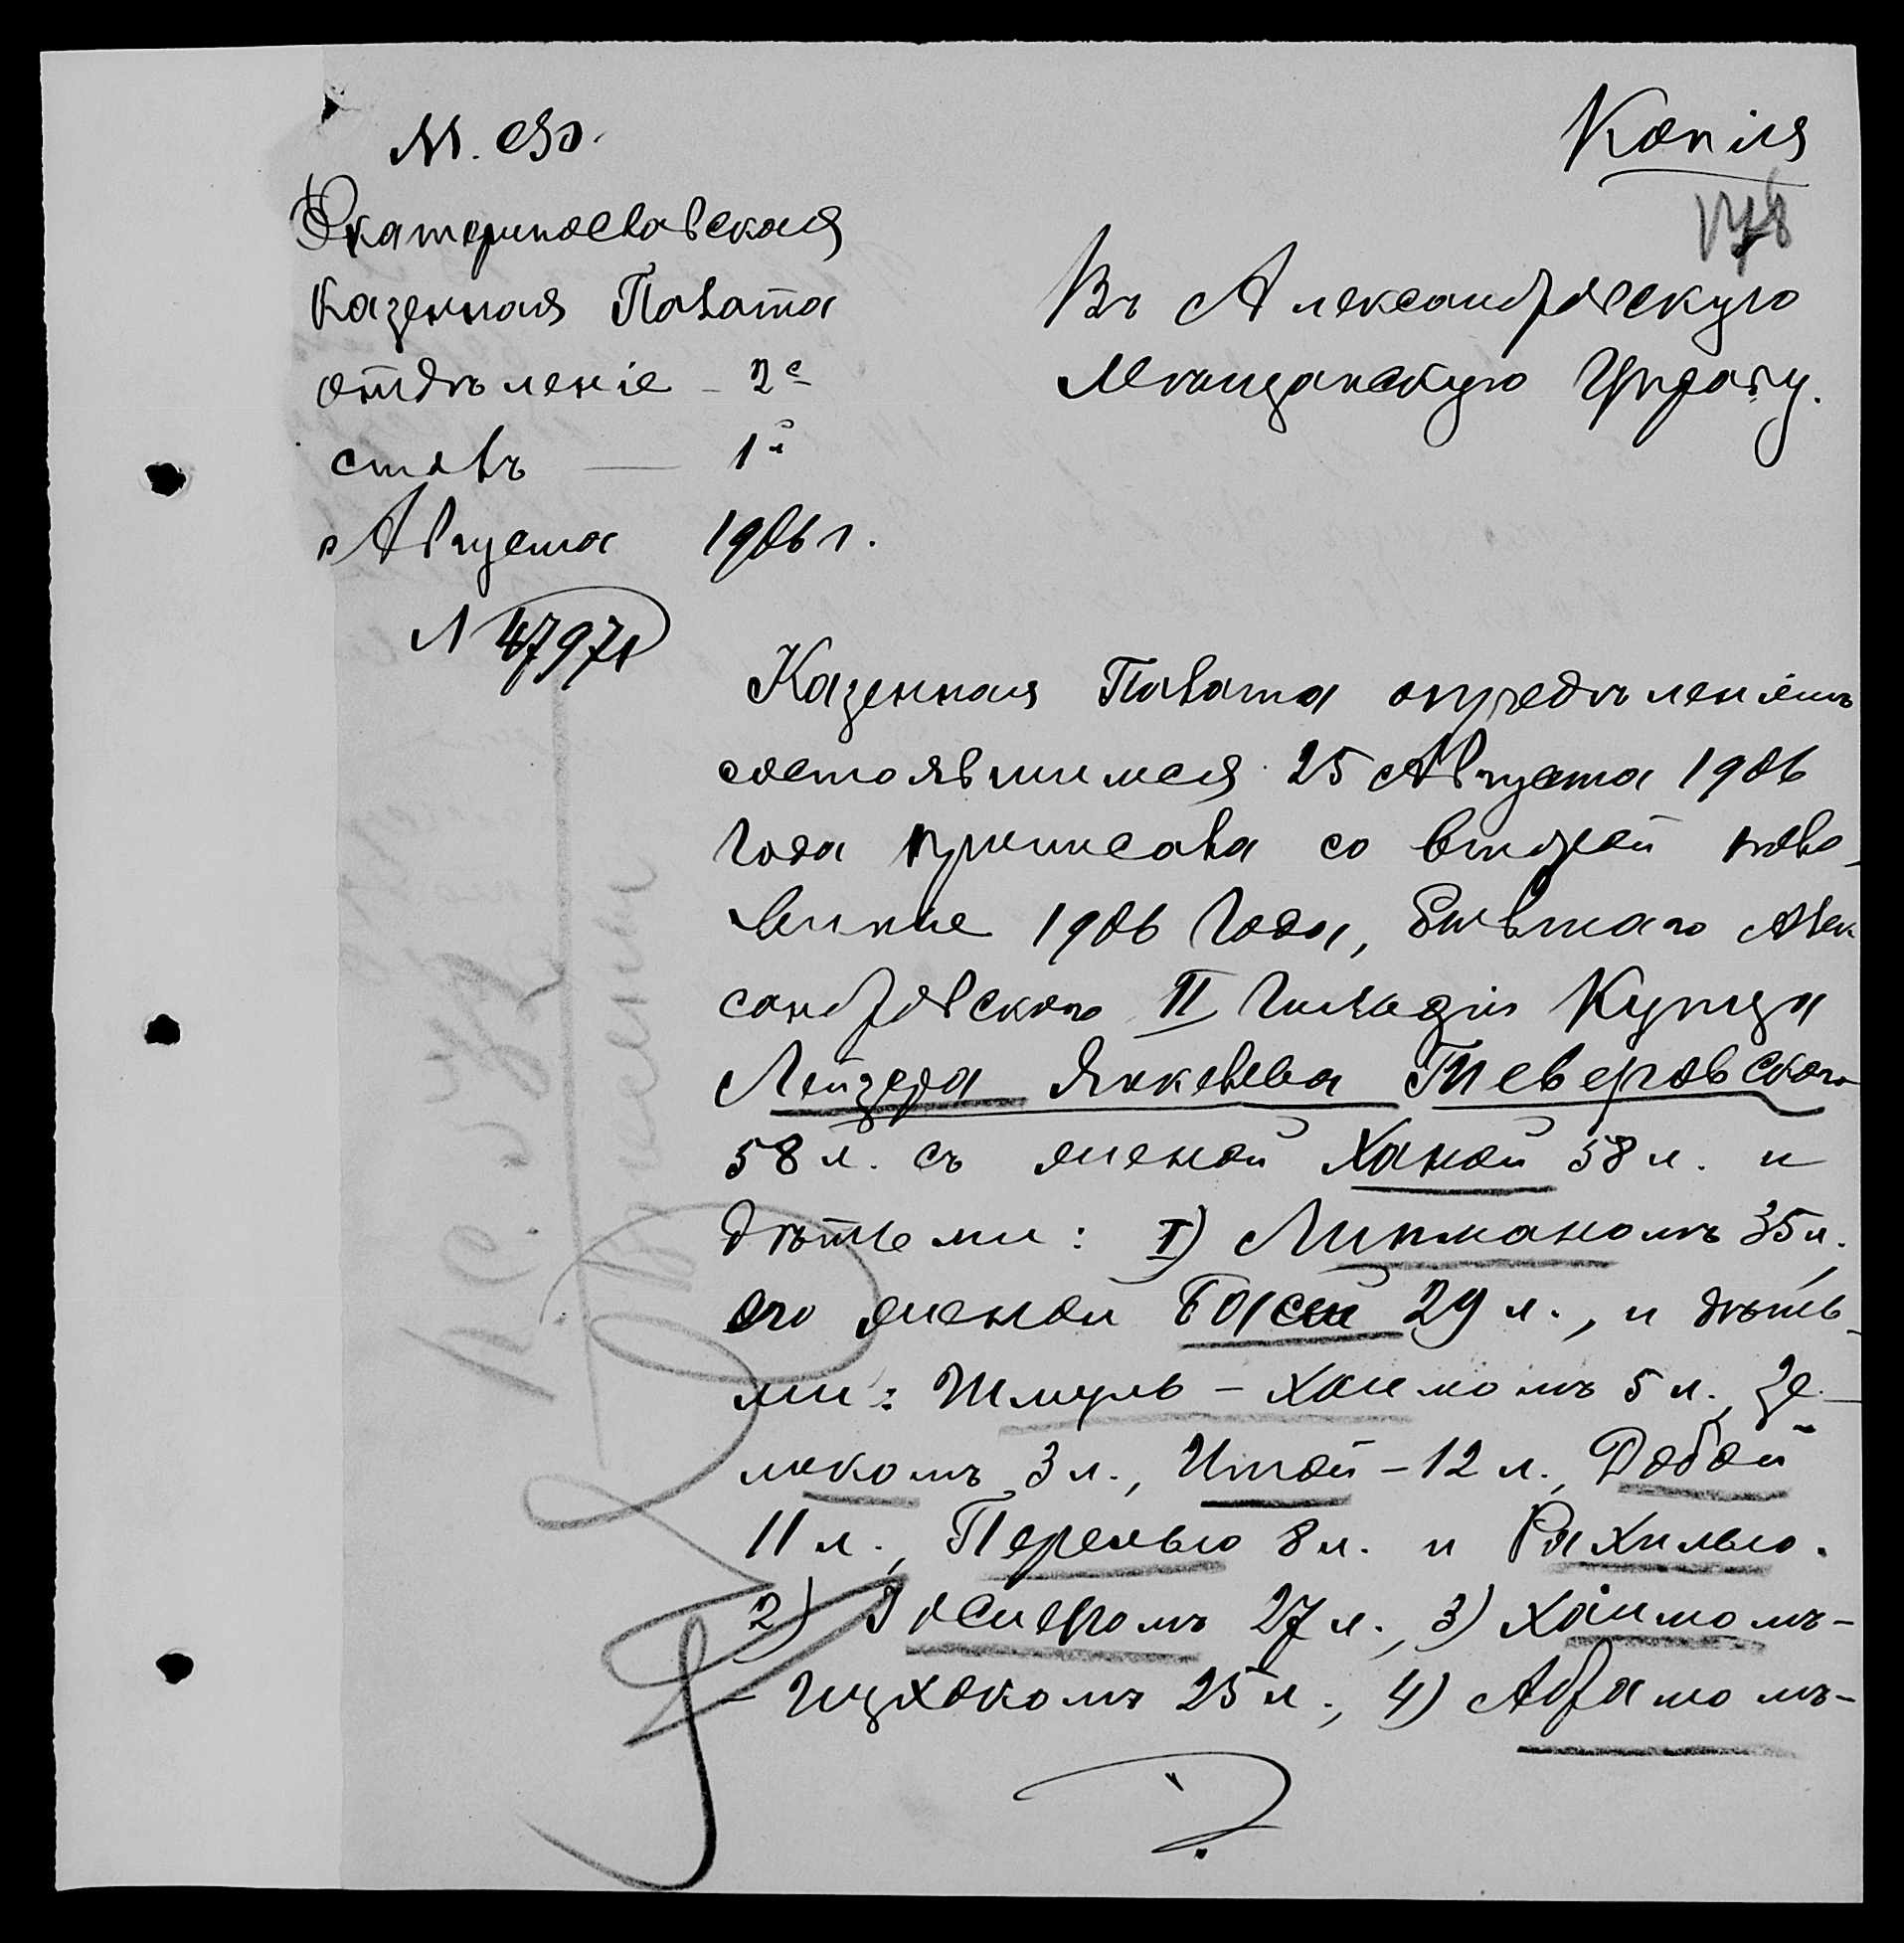 М. Ф.
Копія
178
Екатеринославская
Казенная Палата
отдѣленіе - 2е
столъ — 1й
Августа 1906 г.
N 47971
Въ Александровскую
Мѣщанскую Управу.
Казенная Палата опредѣленіемъ
состоявшимся 25 Августа 1906
года причислила со второй поло-
вины 1906 года, бывшаго Алек
сандровскаго II гильдіи Купца
Лейзера Янкелева Тиверовскаго
58 л. съ женой Ханой 58 л. и
дѣтьми: 1) Липманомъ 35 л.,
его женой Басей 29 л., и дѣть-
ми: Шмуль-Хаимомъ 5 л., Зе-
ликомъ 3 л., Итой - 12 л., Добой
11 л., Перелью 8 л. и Рахилью.
2) Іосифомъ 27 л., 3) Хаимомъ-
- Ицхокомъ 25 л., 4) Абрамомъ-